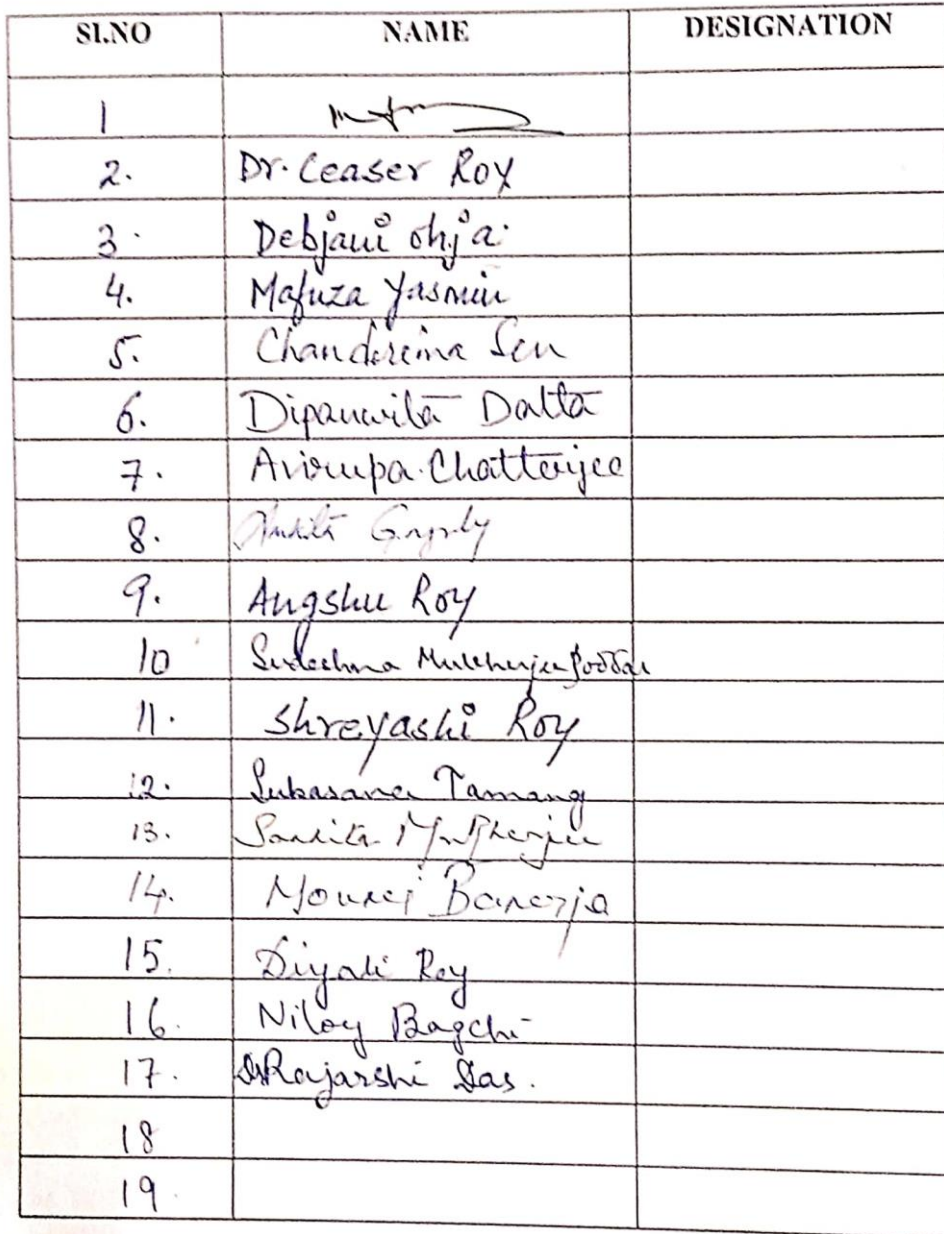 SI.NO NAME DESIGNATION
1
2. Dr. Ceaser Roy
3. Debjani Ohja.
4. Mafuza Yasmin
5. Chandreima Sen
6. Dipanwita Datta
7. Avirupa Chatterjee
8.
9. Angshu Roy
10 Sudeshna Mukherjee Poddar
11. Shreyashi Roy
12. Subasana Tamang
13. Mukherjee
14. Banerja
15. Diyali Roy
16. Niloy Bagchi
17. Dr Rajarshi Das.
18
19.